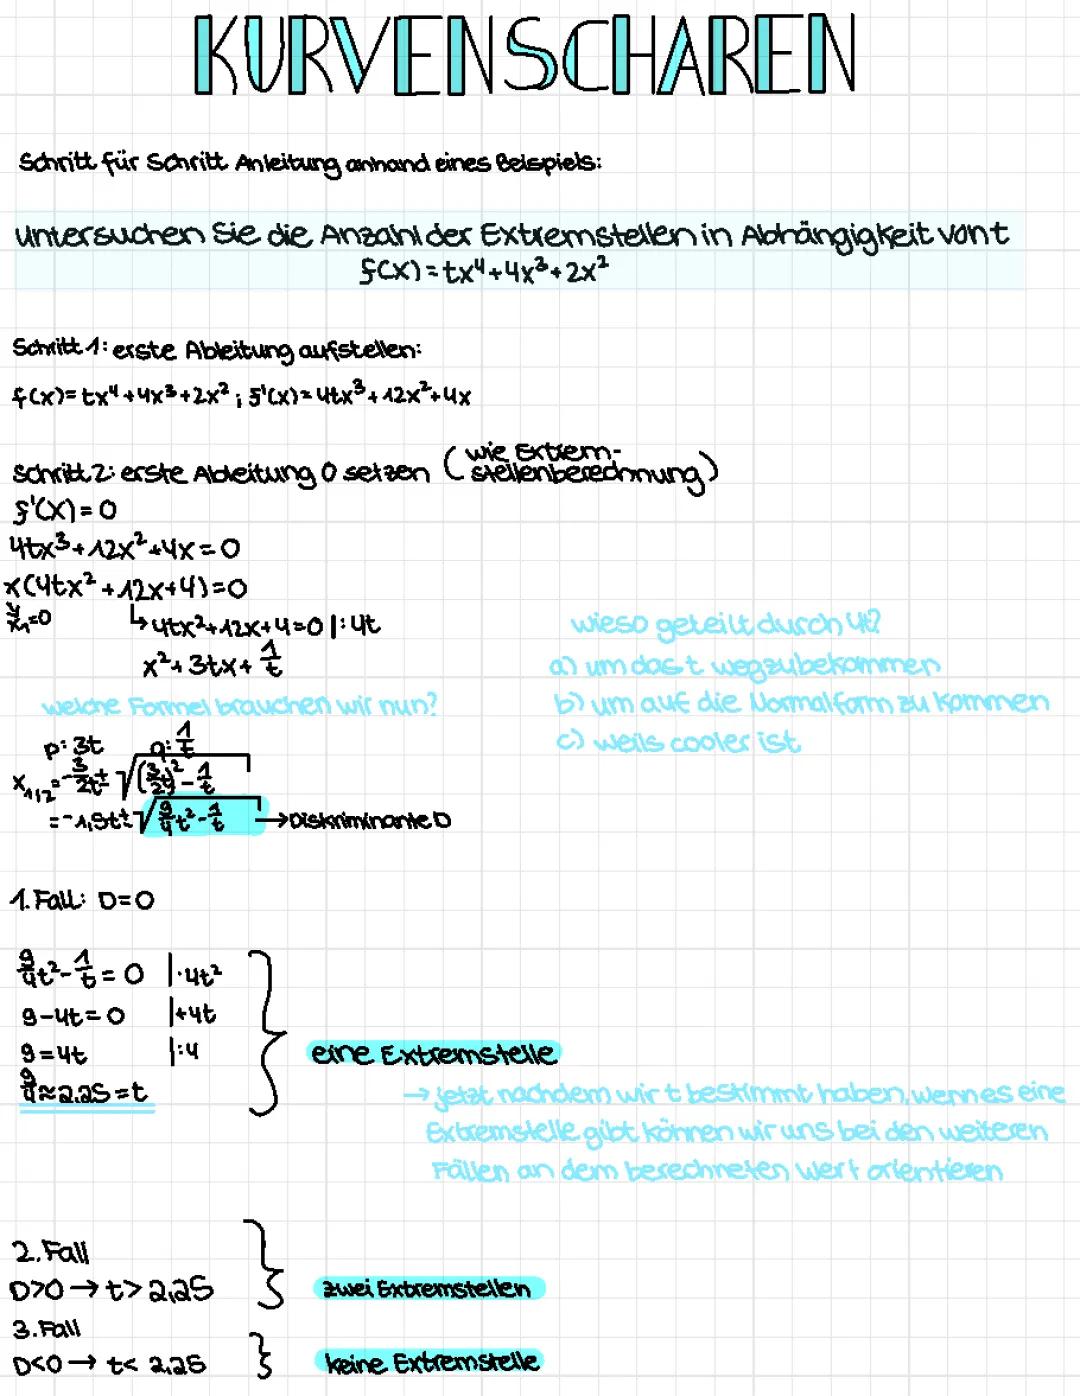 KURVENSCHAREN
Schritt für Schritt Anleitung anhand eines Beispiels:
Untersuchen Sie die Anzahl der Extremstellen in Abhängigkeit von t
f(x)=tx⁴+4x³+2x²
Schritt 1: erste Ableitung aufstellen:
f(x)=tx⁴+4x³+2x² ; f'(x)=4tx³+12x²+4x
Schritt 2: erste Ableitung 0 setzen (wie Extrem-
stellenberechnung)
f'(x)=0
4tx³+12x²+4x=0
x(4tx²+12x+4)=0
x₁=0 ↳4tx²+12x+4=0 |:4t
x²+3tx+1/t
wieso geteilt durch 4t?
a) um das t wegzubekommen
b) um auf die Normalform zu kommen
c) weils cooler ist
welche Formel brauchen wir nun?
p: 3t q: 1/t
x₁/₂=-3/2t±√(3/2t)²-1/t
=-1,5t±√9/4t²-1/t →Diskriminante D
1. Fall: D=0
9/4t²-1/t=0 |·4t²
9-4t=0 |+4t
9=4t |:4
9/4≈2,25=t
eine Extremstelle
→ jetzt nachdem wir t bestimmt haben, wenn es eine
Extremstelle gibt können wir uns bei den weiteren
Fällen an dem berechneten Wert orientieren
2. Fall
D>0 → t> 2,25 zwei Extremstellen
3. Fall
D<0 → t< 2,25 keine Extremstelle